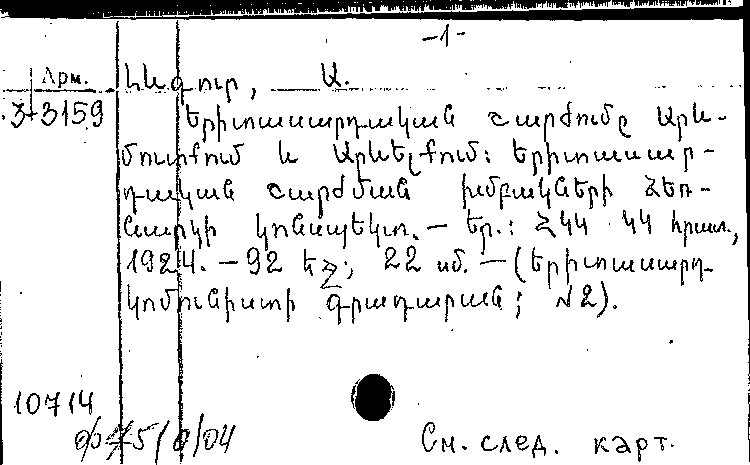 -1-
Арм. Լեգուր, Ա.
3-3159 Երիտասարդական շարժումը Արև-
մուտքում և Արևելքում: Երիտասար-
դական շարժման խմբակների ձեռ-
նարկի կոնսպեկտ. — Եր.: ՀԿԿ ԿԿ հրատ.,
1924. — 92 էջ; 22 սմ. — (Երիտասարդ
կոմունիստի գրադարան; №2).
10714
См. след. карт.